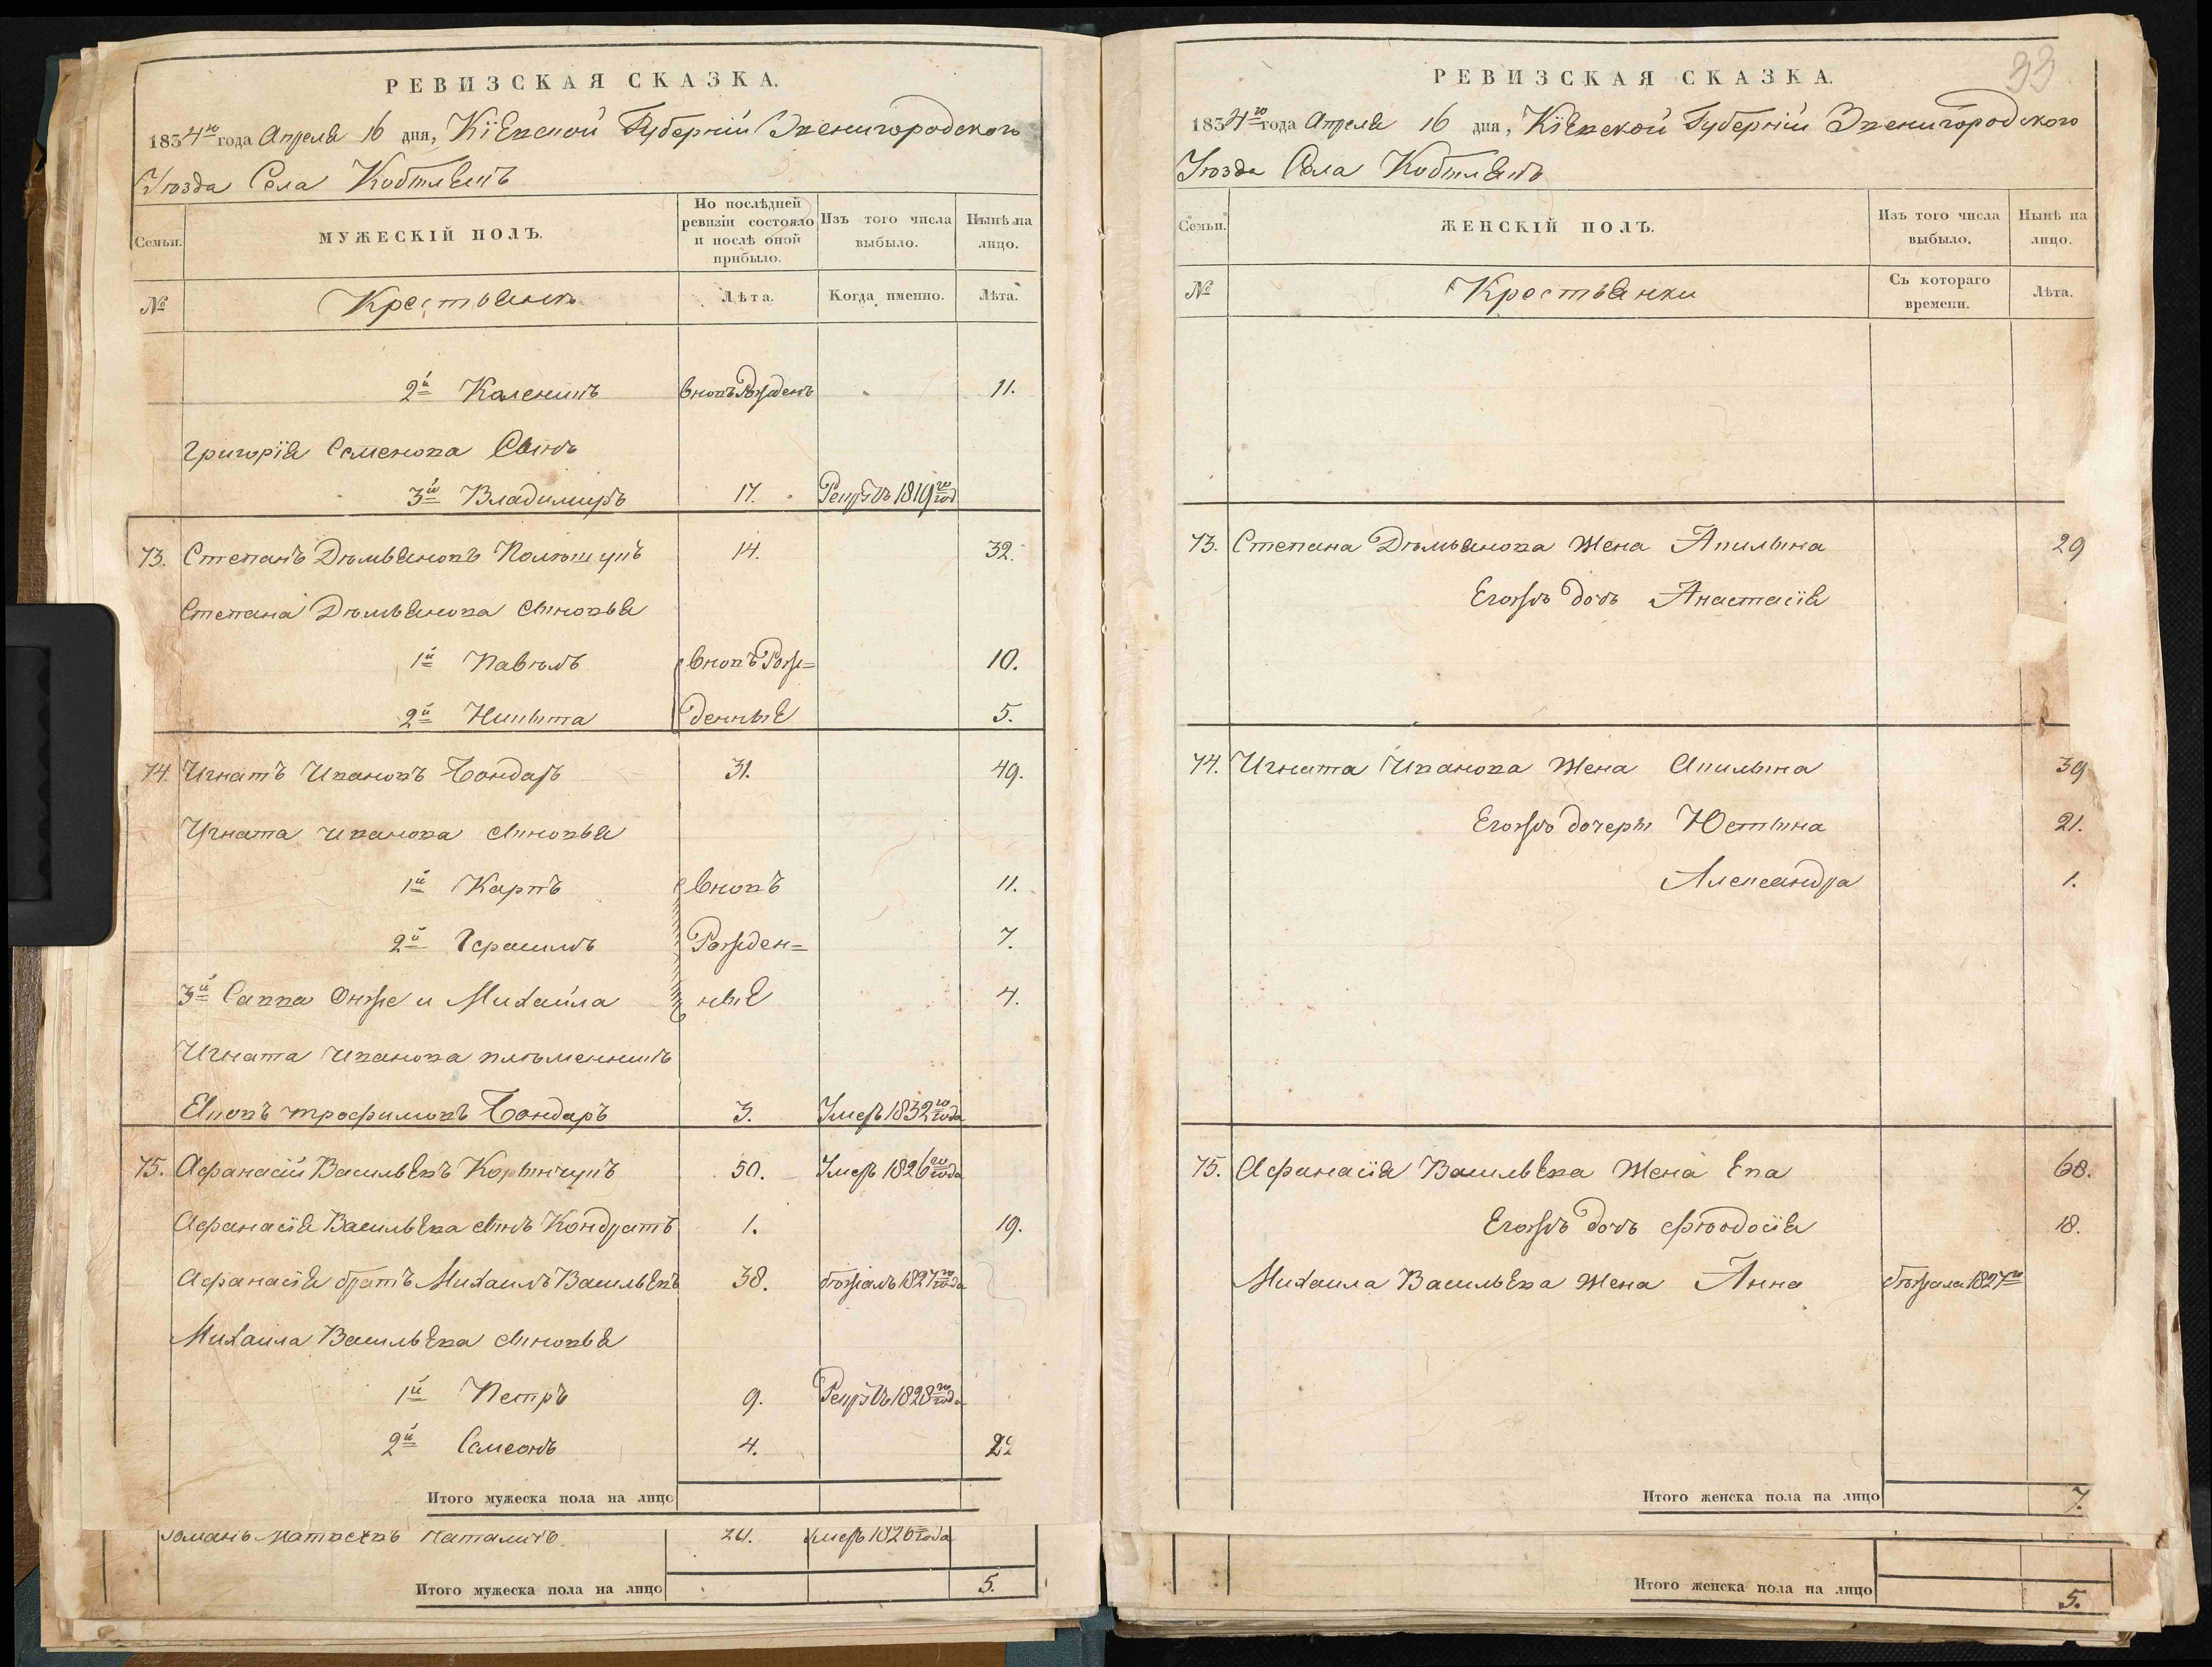 РЕВИЗСКАЯ СКАЗКА.
1834го года Апреля 16 дня, Кіевской Губерніи Звенигородского
Уѣзда Села
Семьи.
МУЖЕСКІЙ ПОЛЪ.
По послѣдней ревизіи состояло и послѣ оной прибыло.
Изъ того числа выбыло.
Нынѣ на лицо.
№
Крестьянъ
Лѣта.
Когда именно.
Лѣта.
2й Каленикъ вновь рожденъ 11.
Григорія Семенова Сынъ
3й Владимиръ 17. 1819го год
73. Степанъ Дѣмьяновъ Полѣщукъ 14. 32.
Степана Дѣмьянова сыновья
1й Павѣлъ вновь Рож= 10.
2й Никыта денные 5.
74. Игнатъ Ивановъ Бондарь 31. 49.
Игната Иванова сыновья
1й Карпъ вновь 11.
2й Герасимъ Рожден= 7.
3й Савва Онже и Михайла ные 4.
Игната Иванова плѣменникъ
трофимовъ Бондаръ 3. Умеръ 1832го года
75. Афанасій Васильевъ 50. Умеръ 1826го года
Афанасія Васильева сынъ Кондратъ 1. 19.
Афанасія братъ Михаилъ Васильевъ 38. бѣжалъ 1827го года
Михаила Васильева сыновья
1й Петръ 9. 1828го года
2й Самсонъ 4.
Итого мужеска пола на лицо
Романъ 24. умеръ 1826 года
Итого мужеска пола на лицо 5.
33
РЕВИЗСКАЯ СКАЗКА.
1834го года Апреля 16 дня, Кіевской Губерніи Звенигородского
Уѣзда Села
Семьи.
ЖЕНСКІЙ ПОЛЪ.
Изъ того числа выбыло.
Нынѣ на лицо.
№
Крестьянки
Съ котораго времени.
Лѣта.
73. Степана Дѣмьянова жена Акилына 29
Егожъ дочь Анастасія
74. Игната Иванова жена Акилына 39
Егожъ дочеры Юстына 21.
Александра 1.
75. Афанасія Васильева жена Ева 68.
Егожъ дочь Фѣодосія 18.
Михаила Васильева жена Анна бѣжала 1827го
Итого женска пола на лицо 7.
Итого женска пола на лицо 5.